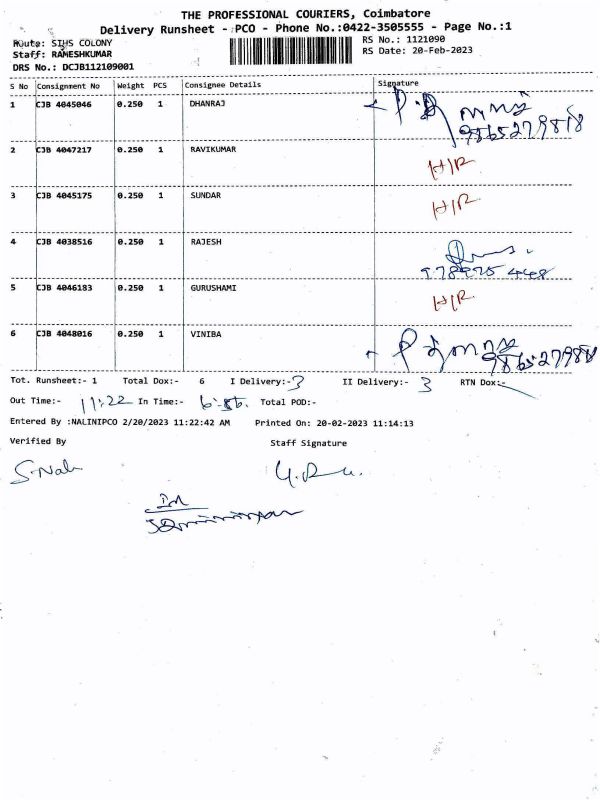 THE PROFESSIONAL COURIERS, Coimbatore
Delivery Runsheet - PCO - Phone No.:0422-3505555 - Page No.:1
Route: SIHS COLONY
RS No.: 1121090
Staff: RAMESHKUMAR
RS Date: 20-Feb-2023
DRS No.: DCJB112109001
S No Consignment No Weight PCS Consignee Details Signature
1 CJB 4045046 0.250 1 DHANRAJ
2 CJB 4047217 0.250 1 RAVIKUMAR H/R
3 CJB 4045175 0.250 1 SUNDAR H/R
4 CJB 4038516 0.250 1 RAJESH
5 CJB 4046183 0.250 1 GURUSHAMI H/R
6 CJB 4048016 0.250 1 VINIBA
Tot. Runsheet:- 1 Total Dox:- 6 I Delivery:- 3 II Delivery:- 3 RTN Dox:-
Out Time:- 11:22 In Time:- Total POD:-
Entered By :NALINIPCO 2/20/2023 11:22:42 AM Printed On: 20-02-2023 11:14:13
Verified By Staff Signature